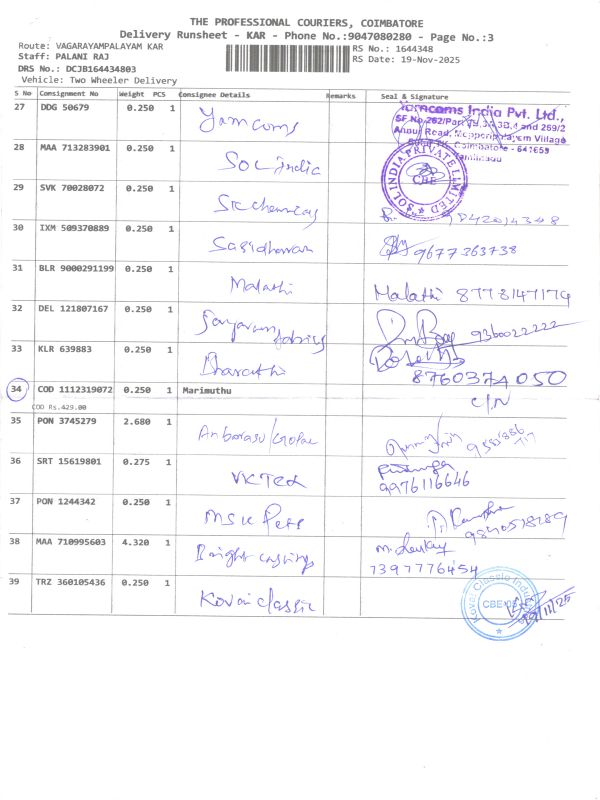 THE PROFESSIONAL COURIERS, COIMBATORE
Delivery Runsheet - KAR - Phone No.:9047080280 - Page No.:3
Route: VAGARAYAMPALAYAM KAR
RS No.: 1644348
Staff: PALANI RAJ
RS Date: 19-Nov-2025
DRS No.: DCJB164434803
Vehicle: Two Wheeler Delivery
S No Consignment No Weight PCS Consignee Details Remarks Seal & Signature
27 DDG 50679 0.250 1 Yamcoms
Yamcoms India Pvt. Ltd.,
28 MAA 713283901 0.250 1 SOL India
SOL INDIA PRIVATE LIMITED
CBE
29 SVK 70028072 0.250 1
30 IXM 509370889 0.250 1 Sasidharan 9677363738
31 BLR 9000291199 0.250 1 Malathi Malathi 8778147174
32 DEL 121807167 0.250 1 9360022222
33 KLR 639883 0.250 1 Bharathi
8760374050
34 COD 1112319072 0.250 1 Marimuthu C/N
COD Rs.429.00
35 PON 3745279 2.680 1
36 SRT 15619801 0.275 1 VK Tech
9976116646
37 PON 1244342 0.250 1
9840518289
38 MAA 710995603 4.320 1 Bright castings
7397776454
39 TRZ 360105436 0.250 1 Kovai classic
CBE
19/11/25